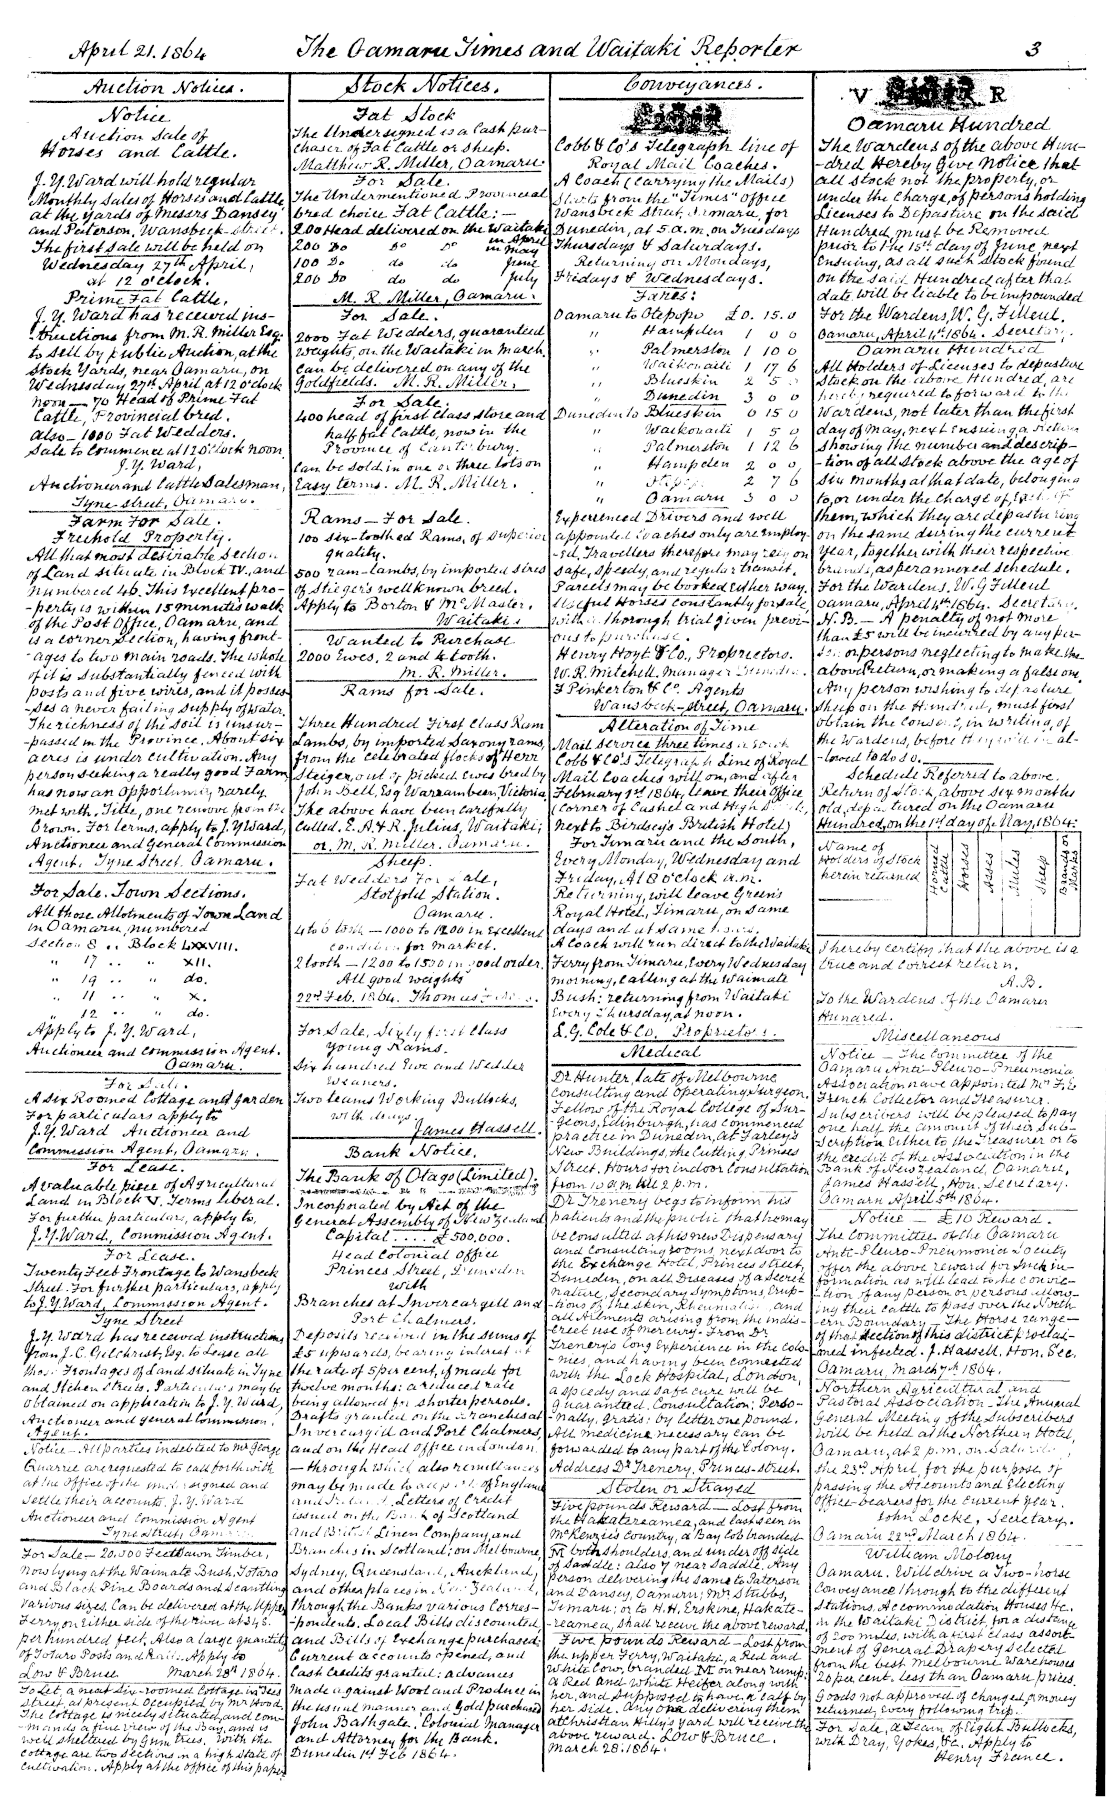 April 21. 1864
The Oamaru Times and Waitaki Reporter
3
Auction Notices.
Notice
Auction Sale of
Horses and Cattle.
J. Y. Ward will hold regular
Monthly Sales of Horses and Cattle
at the yards of Messrs Dansey
and Paterson, Wansbeck-street.
The first sale will be held on
Wednesday 27th April,
at 12 o'clock.
Prime Fat Cattle.
J. Y. Ward has received ins-
-tructions from M. R. Miller Esq.
to sell by public Auction, at the
Stock Yards, near Oamaru, on
Wednesday 27th April at 12 o'clock
noon — 70 Head of Prime Fat
Cattle, Provincial bred.
also — 1000 Fat Wedders.
Sale to commence at 12 o'clock noon,
J. Y. Ward,
Auctioneer and Cattle Salesman,
Tyne-street, Oamaru.
Farm For Sale.
Freehold Property.
All that most desirable Section
of Land situate in Block IV., and
numbered 46. This Excellent pro-
-perty is within 15 minutes walk
of the Post Office, Oamaru, and
is a corner Section, having front-
-ages to two main roads. The whole
of it is substantially fenced with
posts and five wires, and it posses-
-ses a never failing supply of water.
The richness of the soil is unsur-
-passed in the Province. About six
acres is under cultivation. Any
person seeking a really good Farm
has now an opportunity rarely
met with. Title, one remove from the
Crown. For terms, apply to J. Y. Ward,
Auctioneer and General Commission
Agent, Tyne Street. Oamaru.
For Sale. Town Sections.
All those Allotments of Town Land
in Oamaru, numbered
Section 8 .. Block LXXVIII.
" 17 .. " XII.
" 19 .. " do.
" 11 .. " X.
" 12 .. " do.
Apply to J. Y. Ward,
Auctioneer and Commission Agent.
Oamaru.
For Sale.
A six Roomed Cottage and Garden
For particulars apply to
J. Y. Ward Auctioneer and
Commission Agent, Oamaru.
For Lease.
A valuable piece of Agricultural
Land in Block V. Terms liberal.
For further particulars, apply to,
J. Y. Ward, Commission Agent.
For Lease.
Twenty Feet Frontage to Wansbeck
Street. For further particulars, apply
to J. Y. Ward, Commission Agent.
Tyne Street
J. Y. Ward has received instructions
from J. C. Gilchrist, Esq. to Lease all
those Frontages of Land situate in Tyne
and Itchen Streets. Particulars may be
obtained on application to J. Y. Ward,
Auctioneer and general Commission
Agent.
Notice — All parties indebted to Mr George
Quarrie are requested to call forthwith
at the Office of the undersigned and
settle their accounts. J. Y. Ward
Auctioneer and Commission Agent
Tyne Street, Oamaru
For Sale — 20,500 Feet Sawn Timber,
now lying at the Waimate Bush. Totara
and Black Pine Boards and Scantling
various sizes. Can be delivered at the Upper
Ferry on Either side of the river at
per hundred feet. Also a large quantity
of Totara Posts and Rails. Apply to
Low & Bruce March 28th 1864.
To Let, a neat Six-roomed Cottage in Tees
Street, at present Occupied by Mr Hood.
The Cottage is nicely situated, and com-
-mands a fine view of the Bay, and is
well sheltered by Gum trees. With the
cottage are two sections in a high state of
cultivation. Apply at the office of this paper
Stock Notices.
Fat Stock
The Undersigned is a Cash pur-
chaser of Fat Cattle or Sheep.
Matthew R. Miller, Oamaru.
For Sale.
The Undermentioned Provincial
bred choice Fat Cattle: —
200 Head delivered on the Waitaki
in April
200 Do do do in May
100 Do do do June
200 Do do do July
M. R. Miller, Oamaru.
For Sale.
2000 Fat Wedders, guaranteed
weights, on the Waitaki in March,
can be delivered on any of the
Goldfields. M. R. Miller,
For Sale.
400 head of first class store and
half fat Cattle, now in the
Province of Canterbury.
Can be sold in one or three lots on
Easy terms. M. R. Miller.
Rams — For Sale.
100 six-toothed Rams, of superior
quality.
500 ram-lambs, by imported sires
of Stieger's well known breed.
Apply to Borton & McMaster.
Waitaki
Wanted to Purchase
2000 Ewes, 2 and 4 tooth.
M. R. Miller.
Rams for Sale.
Three Hundred First Class Ram
Lambs, by imported Saxony rams,
from the celebrated flocks of Herr
Steiger, out of picked Ewes bred by
John Bell, Esq Warrambeen, Victoria.
The above have been carefully
culled. E. A. & R. Julius, Waitaki;
or, M. R. Miller. Oamaru.
Sheep.
Fat Wedders For Sale,
Stotfold Station.
Oamaru.
4 to 6 tooth — 1000 to 1200 in Excellent
condition for market.
2 tooth — 1200 to 1500 in good order.
All good weights
22nd Feb. 1864. Thomas
For Sale, Sixty first class
Young Rams.
Six hundred Ewe and Wedder
Weaners.
Two teams Working Bullocks,
with drays.
James Hassell.
Bank Notice.
The Bank of Otago (Limited).
Incorporated by Act of the
General Assembly of New Zealand
Capital .... £500,000.
Head Colonial Office
Princes Street, Dunedin
with
Branches at Invercargill and
Port Chalmers.
Deposits received in the sums of
£5 upwards, bearing interest at
the rate of 5 per cent, if made for
twelve months: a reduced rate
being allowed for shorter periods.
Drafts granted on the Branches at
Invercargill and Port Chalmers,
and on the Head Office in London
— through which also remittances
may be made to all parts of England
and Ireland, Letters of Credit
issued on the Bank of Scotland
and British Linen Company, and
Branches in Scotland; on Melbourne,
Sydney, Queensland, Auckland,
and other places in New Zealand,
through the Banks various Corres-
-pondents. Local Bills discounted,
and Bills of Exchange purchased;
Current accounts opened, and
Cash Credits granted; advances
made against Wool and Produce in
the usual manner and Gold purchased
John Bathgate. Colonial Manager
and Attorney for the Bank.
Dunedin 1st Feb 1864.
Conveyances.
Cobb & Co's Telegraph line of
Royal Mail Coaches.
A Coach (carrying the Mails)
Starts from the "Times" Office
Wansbeck Street, Oamaru, for
Dunedin, at 5 a.m. on Tuesdays
Thursdays & Saturdays.
Returning on Mondays,
Fridays & Wednesdays.
Fares:
Oamaru to Otepopo £0. 15. 0
" Hampden 1 0 0
" Palmerston 1 10 0
" Waikouaiti 1 17 6
" Blueskin 2 5 0
" Dunedin 3 0 0
Dunedin to Blueskin 0 15 0
" Waikouaiti 1 5 0
" Palmerston 1 12 6
" Hampden 2 0 0
" Otepopo 2 7 6
" Oamaru 3 0 0
Experienced Drivers and well
appointed Coaches only are employ-
-ed, Travellers therefore may rely on
safe, speedy, and regular transit.
Parcels may be booked Either way.
Useful Horses constantly for sale,
with a thorough trial given previ-
ous to purchase.
Henry Hoyt & Co, Proprietors.
W. R. Mitchell, Manager Dunedin.
F Pinkerton & Co. Agents
Wansbeck-street, Oamaru.
Alteration of Time
Mail service three times a week
Cobb & Co's Telegraph Line of Royal
Mail Coaches will on, and after
February 1st 1864, leave their Office
(Corner of Cashel and High Streets,
next to Birdsey's British Hotel)
For Timaru and the South,
Every Monday, Wednesday and
Friday, At 8 o'clock a.m.
Returning, will leave Green's
Royal Hotel, Timaru, on same
days and at same hours.
A Coach will run direct to the Waitaki
Ferry from Timaru, Every Wednesday
morning, calling at the Waimate
Bush: returning from Waitaki
Every Thursday, at noon.
L. G. Cole & Co, Proprietors.
Medical
Dr Hunter, late of Melbourne
Consulting and Operating Surgeon,
Fellow of the Royal College of Sur-
-geons, Edinburgh, has commenced
practice in Dunedin, at Farley's
New Buildings, the Cutting, Princes
Street. Hours for indoor Consultation
from 10 a.m. till 2 p.m.
Dr Trenery begs to inform his
patients and the public that he may
be consulted at his new Dispensary
and Consulting rooms, next door to
the Exchange Hotel, Princes street,
Dunedin, on all Diseases of a Secret
nature, Secondary Symptoms, Erup-
-tions of the Skin, Rheumatism, and
all Ailments arising from the indis-
creet use of Mercury. From Dr
Trenery's long Experience in the Colo-
-nies, and having been connected
with the Lock Hospital, London,
a speedy and safe cure will be
guaranteed. Consultation: Perso-
-nally, gratis: by letter one pound.
All medicine necessary can be
forwarded to any part of the Colony.
Address Dr Trenery, Princes-street.
Stolen or Strayed
Five pounds Reward — Lost from
the Hakateramea, and last seen in
McKenzie's Country, a Bay Cob branded
M both shoulders, and under off side
of Saddle: also 7 near saddle. Any
person delivering the same to Paterson
and Dansey, Oamaru; Mr Stubbs,
Timaru; or to H. H. Erskine, Hakate-
-reamea, shall receive the above reward.
Five pounds Reward — Lost from
the upper Ferry, Waitaki, a Red and
White Cow, branded M on near rump:
a Red and White Heifer along with
her, and supposed to have a calf by
her side. Any one delivering them
at Christian Hilly's yard will receive the
above reward. Low & Bruce.
March 28. 1864.
V R
Oamaru Hundred
The Wardens of the above Hun-
-dred Hereby Give Notice that
all stock not the property, or
under the charge, of persons holding
Licenses to Depasture on the said
Hundred, must be Removed
prior to the 15th day of June, next
Ensuing, as all such stock found
on the said Hundred after that
date will be liable to be impounded
For the Wardens, W. G. Filleul.
Oamaru, April 4th 1864. Secretary.
Oamaru Hundred
All Holders of Licenses to depasture
Stock on the above Hundred, are
hereby required to forward to the
Wardens, not later than the first
day of May, next ensuing, a return
showing the number and descrip-
-tion of all Stock above the age of
Six months at that date, belonging
to, or under the charge of Each of
them, which they are depasturing
on the same during the current
Year, together with their respective
brands, as per annexed schedule.
For the Wardens. W. G Filleul
Oamaru, April 4th 1864. Secretary.
N. B. — A penalty of not more
than £5 will be incurred by any per-
-son or persons neglecting to make the
above Return, or making a false one.
Any person wishing to depasture
Sheep on the Hundred, must first
obtain the Consent, in writing, of
the Wardens, before they will be al-
-lowed to do so.
Schedule Referred to above.
Return of Stock, above six months
old, depastured on the Oamaru
Hundred, on the 1st day of May, 1864:
Name of
Holders of Stock
herein returned
Horned Cattle
Horses
Asses
Mules
Sheep
Brands or Marks
I hereby certify that the above is a
true and correct return.
A. B.
To the Wardens of the Oamaru
Hundred.
Miscellaneous
Notice — The Committee of the
Oamaru Anti-Pleuro-Pneumonia
Association have appointed Mr
French Collector and Treasurer.
Subscribers will be pleased to pay
one half the amount of their Sub-
-scription Either to the Treasurer or to
the credit of the Association in the
Bank of New Zealand, Oamaru,
James Hassell, Hon. Secretary.
Oamaru April 5th 1864.
Notice — £10 Reward.
The Committee of the Oamaru
Anti-Pleuro-Pneumonia Society
offer the above reward for such in-
-formation as will lead to the convic-
-tion of any person or persons allow-
-ing their cattle to pass over the North-
-ern Boundary — The Horse range —
of that section of this district proclai-
-med infected. J. Hassell, Hon. Sec.
Oamaru, March 7th 1864.
Northern Agricultural, and
Pastoral Association — The Annual
General Meeting of the Subscribers
will be held at the Northern Hotel,
Oamaru, at 2 p.m. on Saturday,
the 23rd April, for the purpose of
passing the Accounts and Electing
Office-bearers for the Current year.
John Locke, Secretary.
Oamaru 22nd March 1864.
William Molony
Oamaru. Will drive a Two-horse
Conveyance through to the different
Stations, Accommodation Houses &c.
in the Waitaki District, for a distance
of 200 miles, with a first class assort-
ment of General Drapery selected
from the best Melbourne Warehouses
20 per cent. less than Oamaru prices.
Goods not approved of changed, or money
returned, every following trip.
For Sale, a Team of Eight Bullocks,
with Dray, Yokes, &c. Apply to
Henry France.